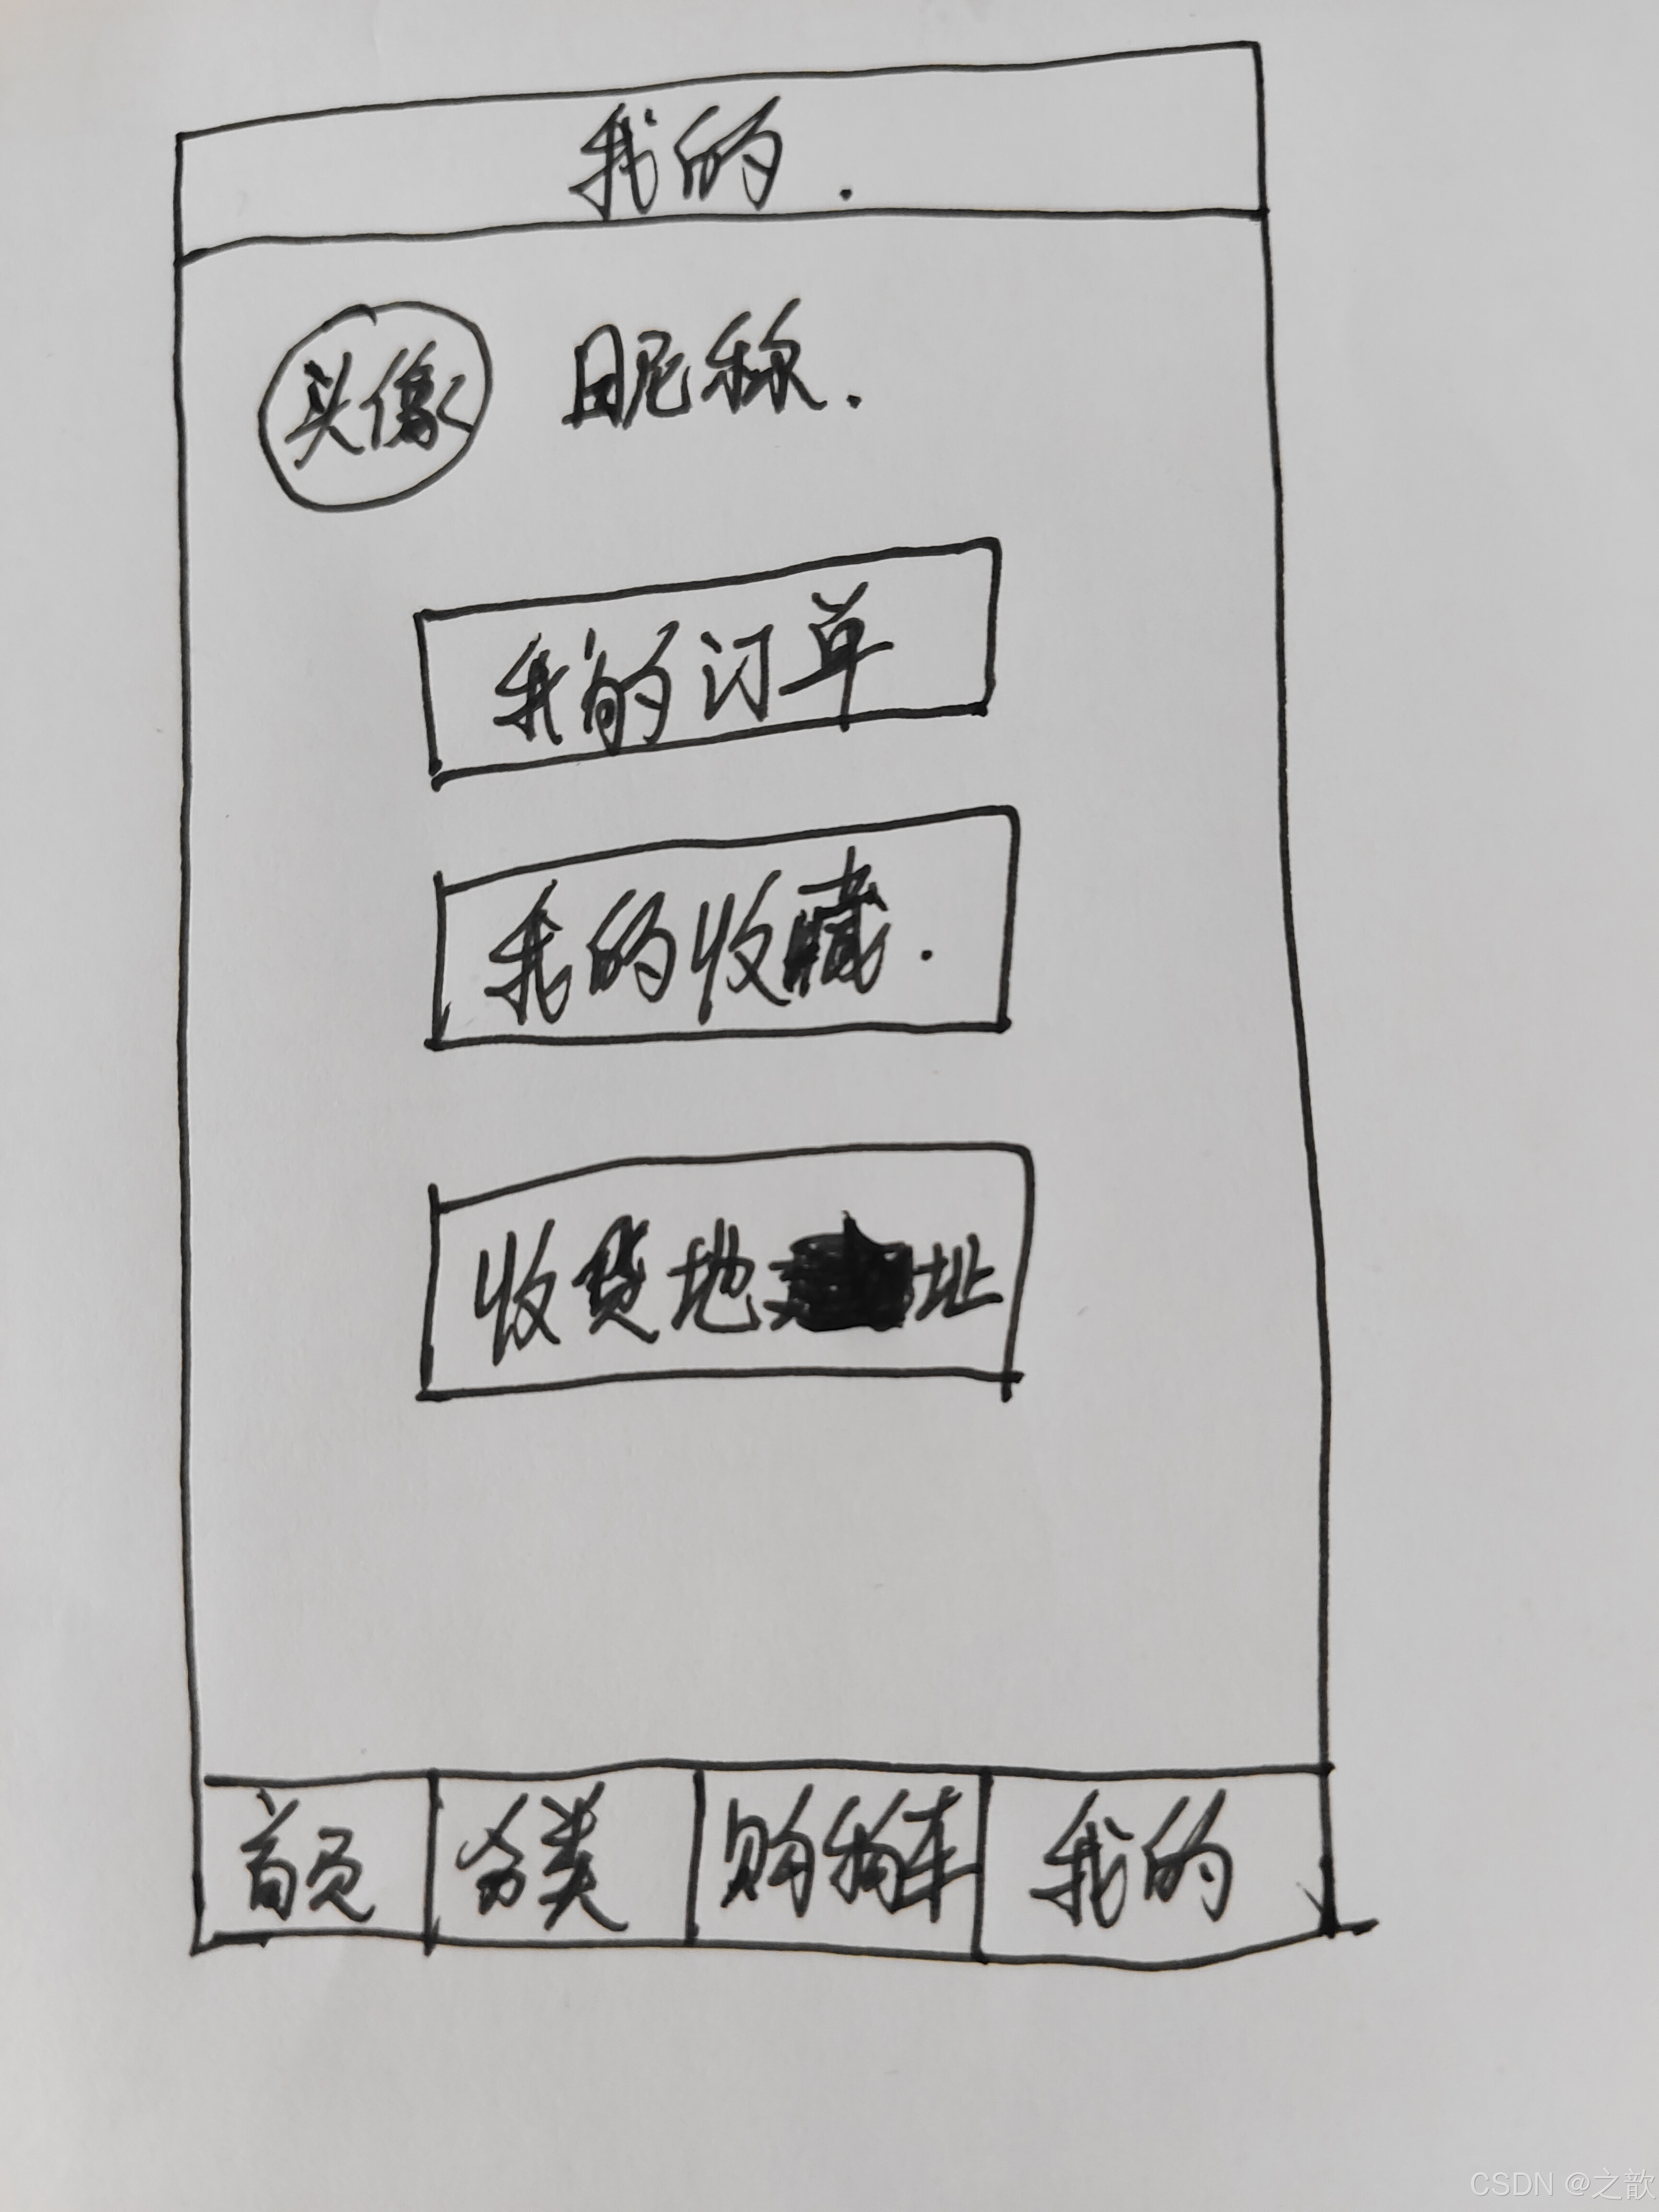 我的.
头像 昵称.
我的订单
我的收藏.
收货地址
首页 分类 购物车 我的
CSDN @之歆